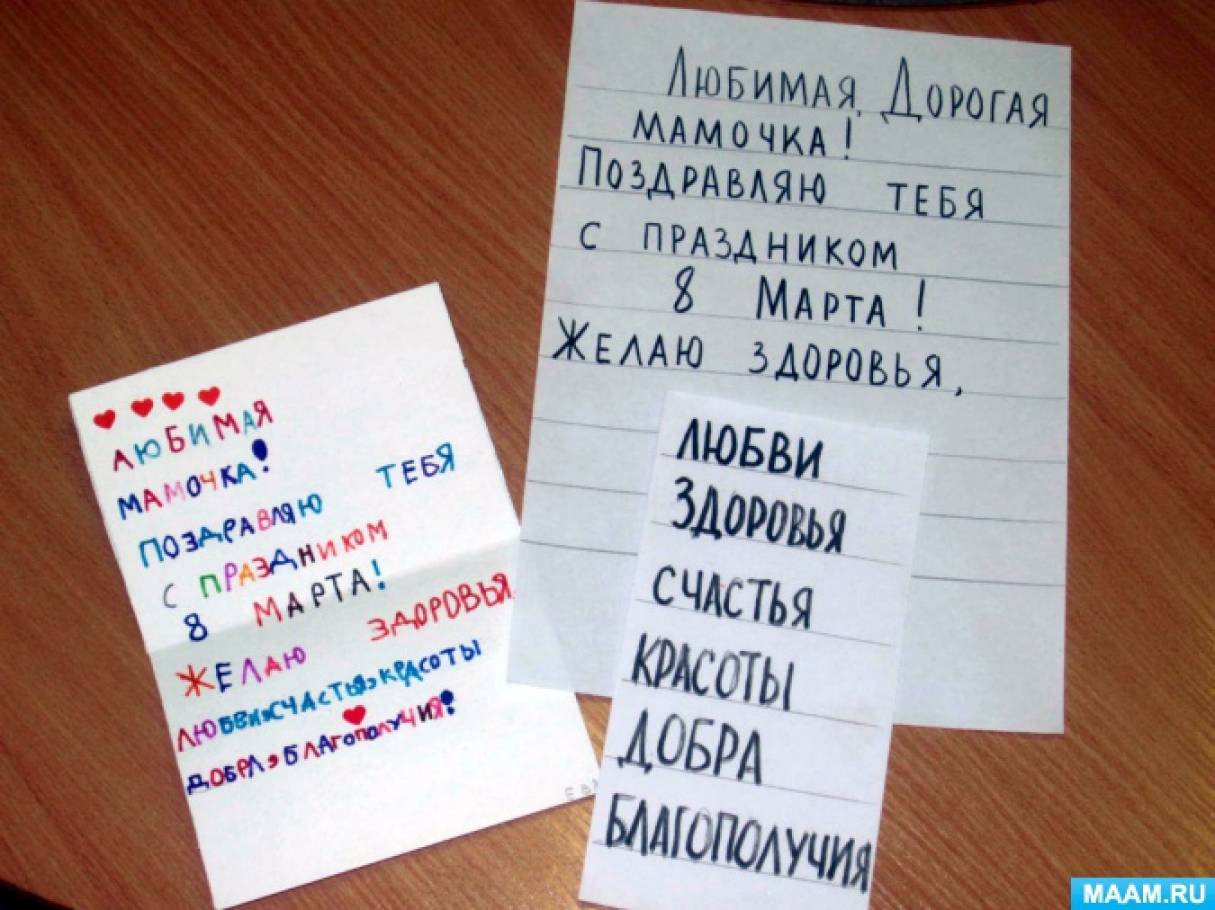 ЛЮБИМАЯ, ДОРОГАЯ
МАМОЧКА!
ПОЗДРАВЛЯЮ ТЕБЯ
С ПРАЗДНИКОМ
8 МАРТА!
ЖЕЛАЮ ЗДОРОВЬЯ,
ЛЮБВИ
ЗДОРОВЬЯ
СЧАСТЬЯ
КРАСОТЫ
ДОБРА
БЛАГОПОЛУЧИЯ
ЛЮБИМАЯ
МАМОЧКА!
ПОЗДРАВЛЯЮ ТЕБЯ
С ПРАЗДНИКОМ
8 МАРТА!
ЖЕЛАЮ ЗДОРОВЬЯ
ЛЮБВИ, СЧАСТЬЯ, КРАСОТЫ
ДОБРА, БЛАГОПОЛУЧИЯ!
MAAM.RU